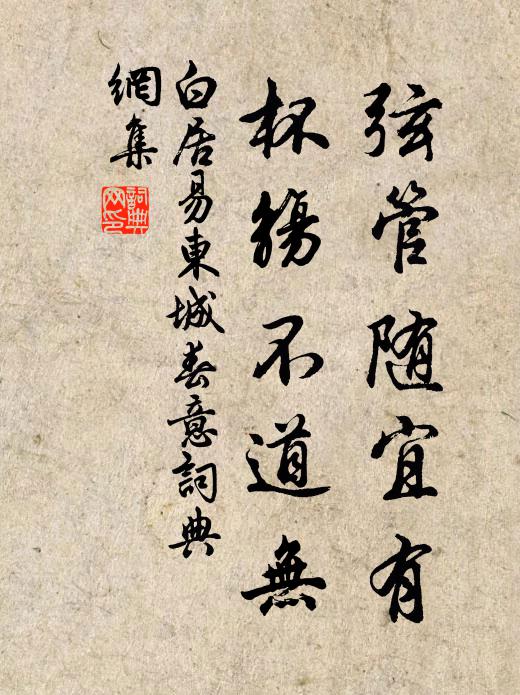 弦管随宜有
杯觴不道無
白居易東城春意詞典
網集
詞典
网印